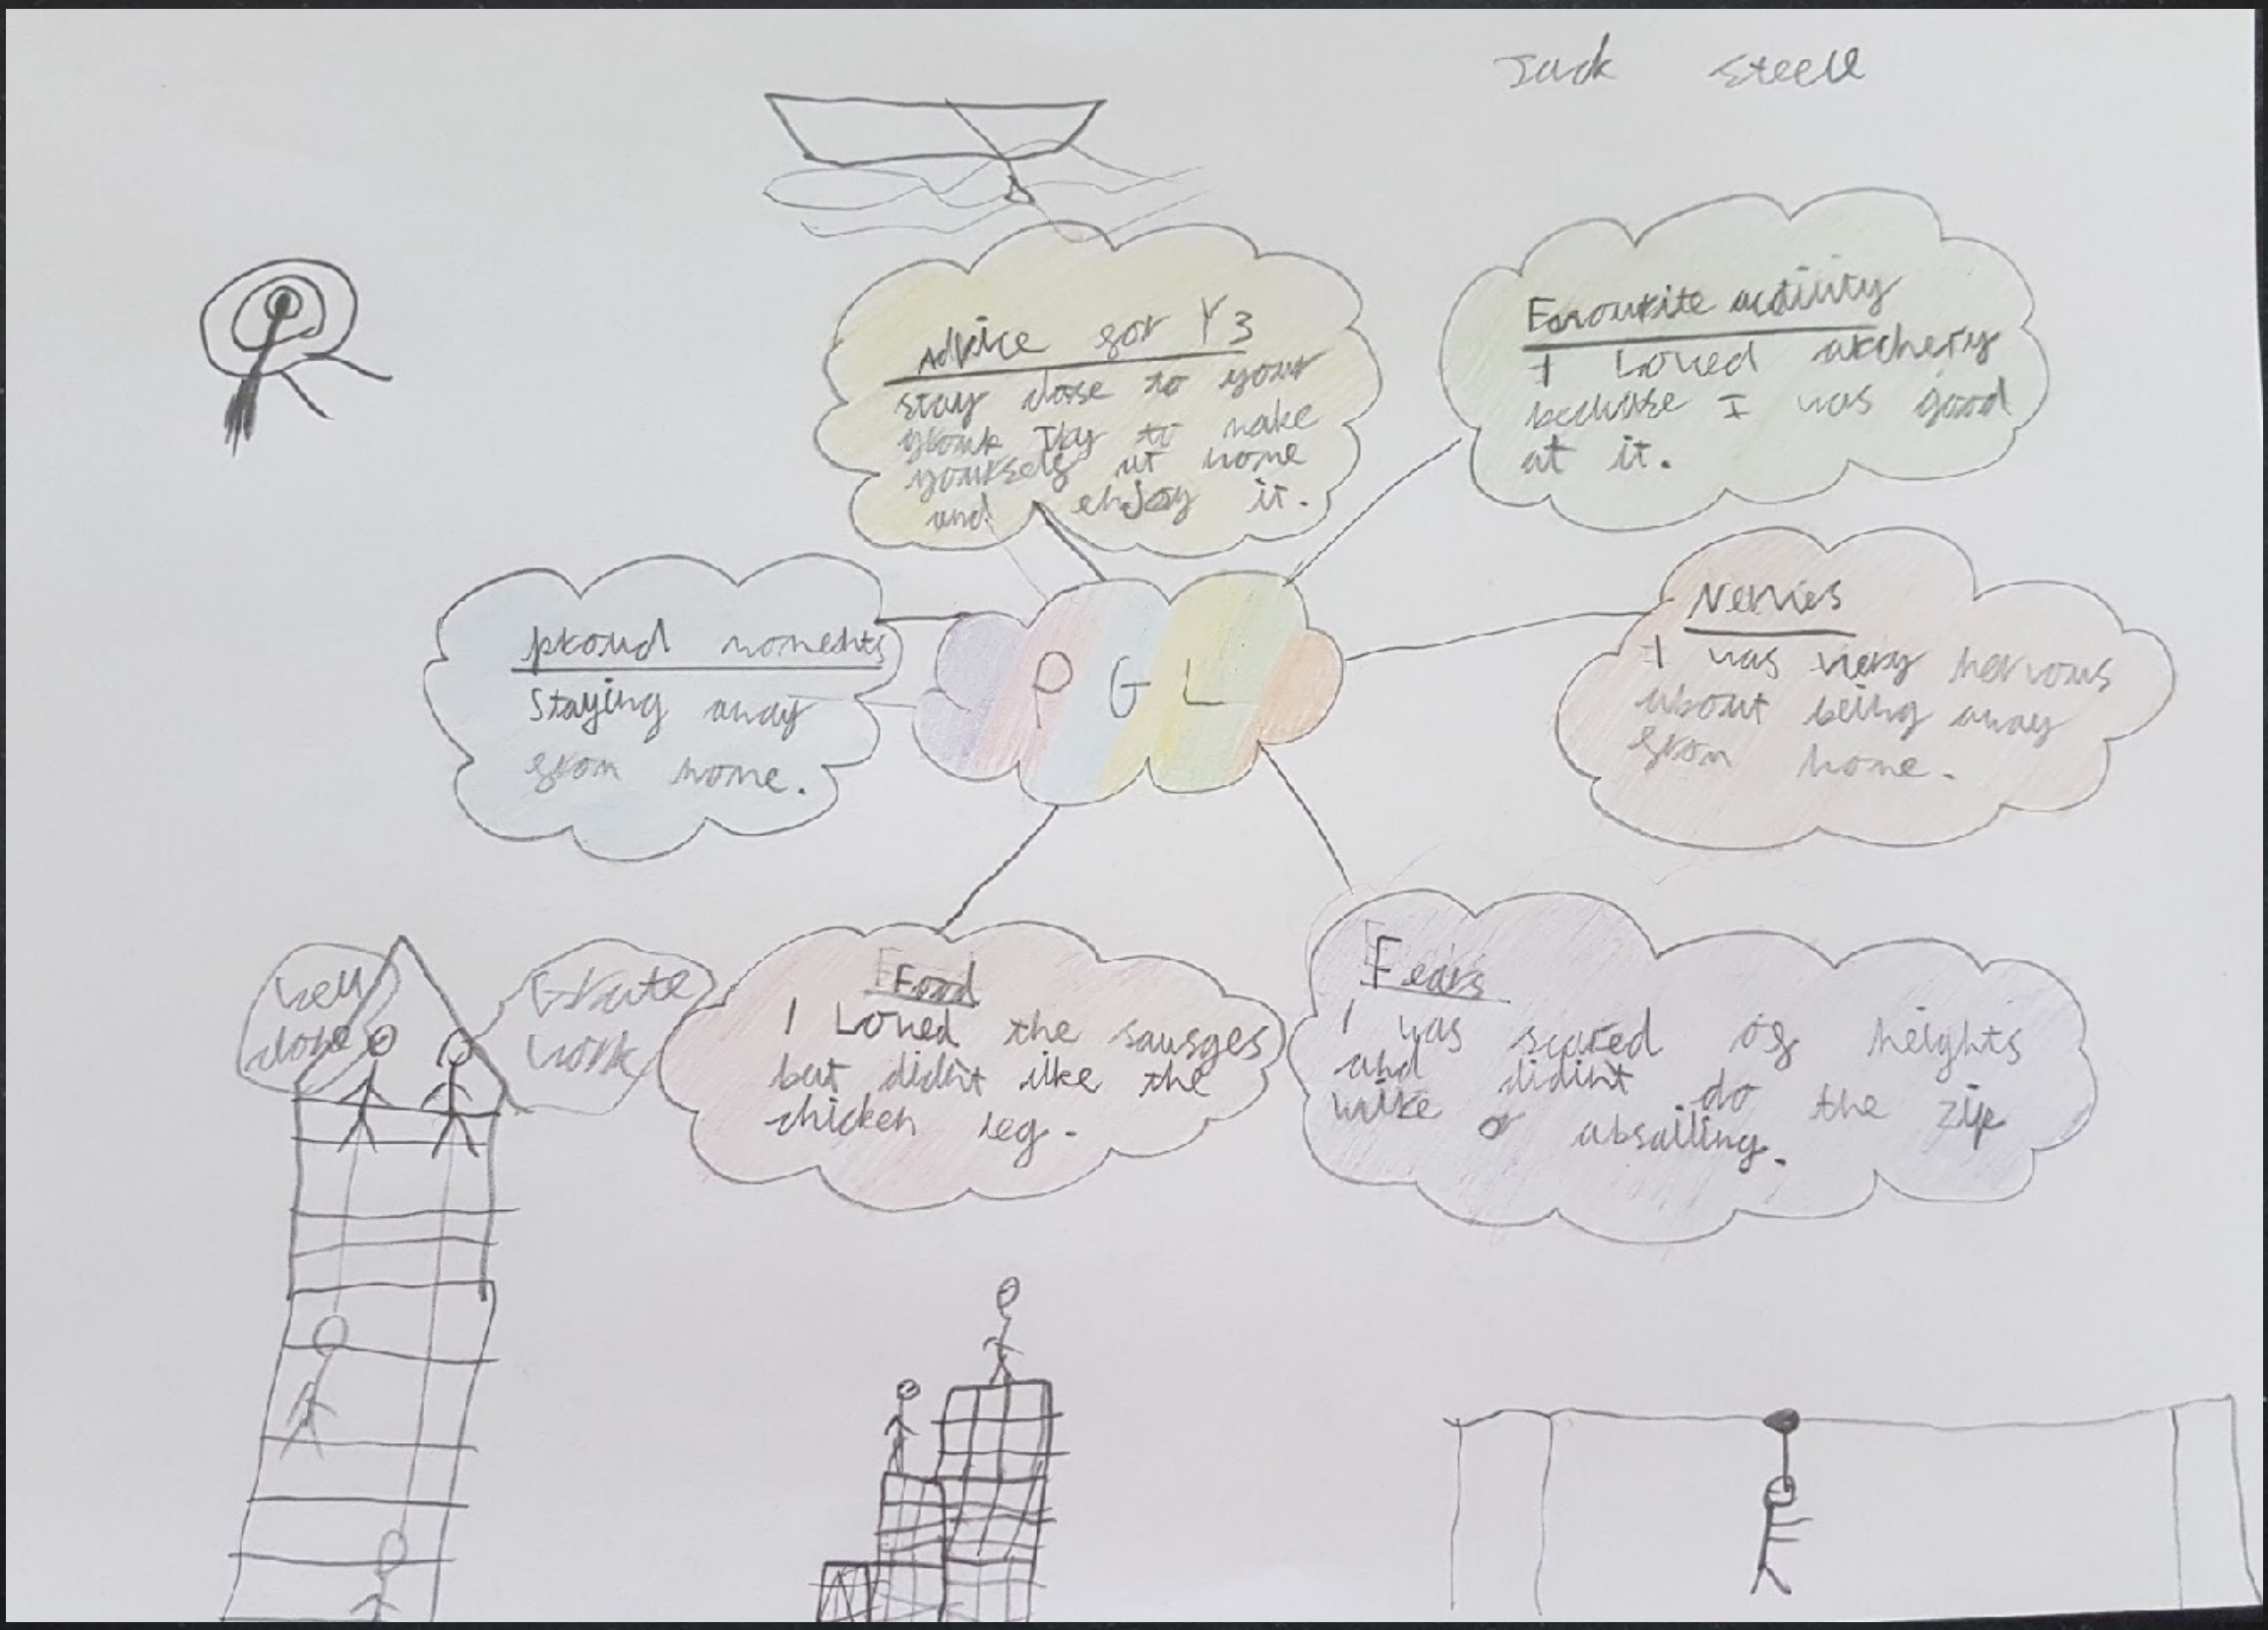 Jack Steele
Advice for Y3
stay close to your
group Try to make
yourself at home
and enjoy it.
Favourite activity
I Loved archery
because I was good
at it.
proud moments
Staying away
from home.
PGL
Nerves
I was very nervous
about being away
from home.
Well
done
Grate
work
Food
I Loved the sausges
but didn't like the
chicken leg.
Fears
I was scared of heights
and didint do the zip
wike or absailing.